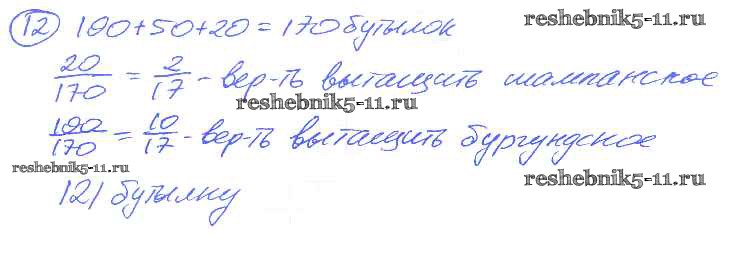 12) 100+50+20=170 бутылок
reshebnik5-11.ru
20/170 = 2/17 - вер-ть вытащить шампанское
reshebnik5-11.ru
100/170 = 10/17 - вер-ть вытащить бургундское
reshebnik5-11.ru
reshebnik5-11.ru
121 бутылку